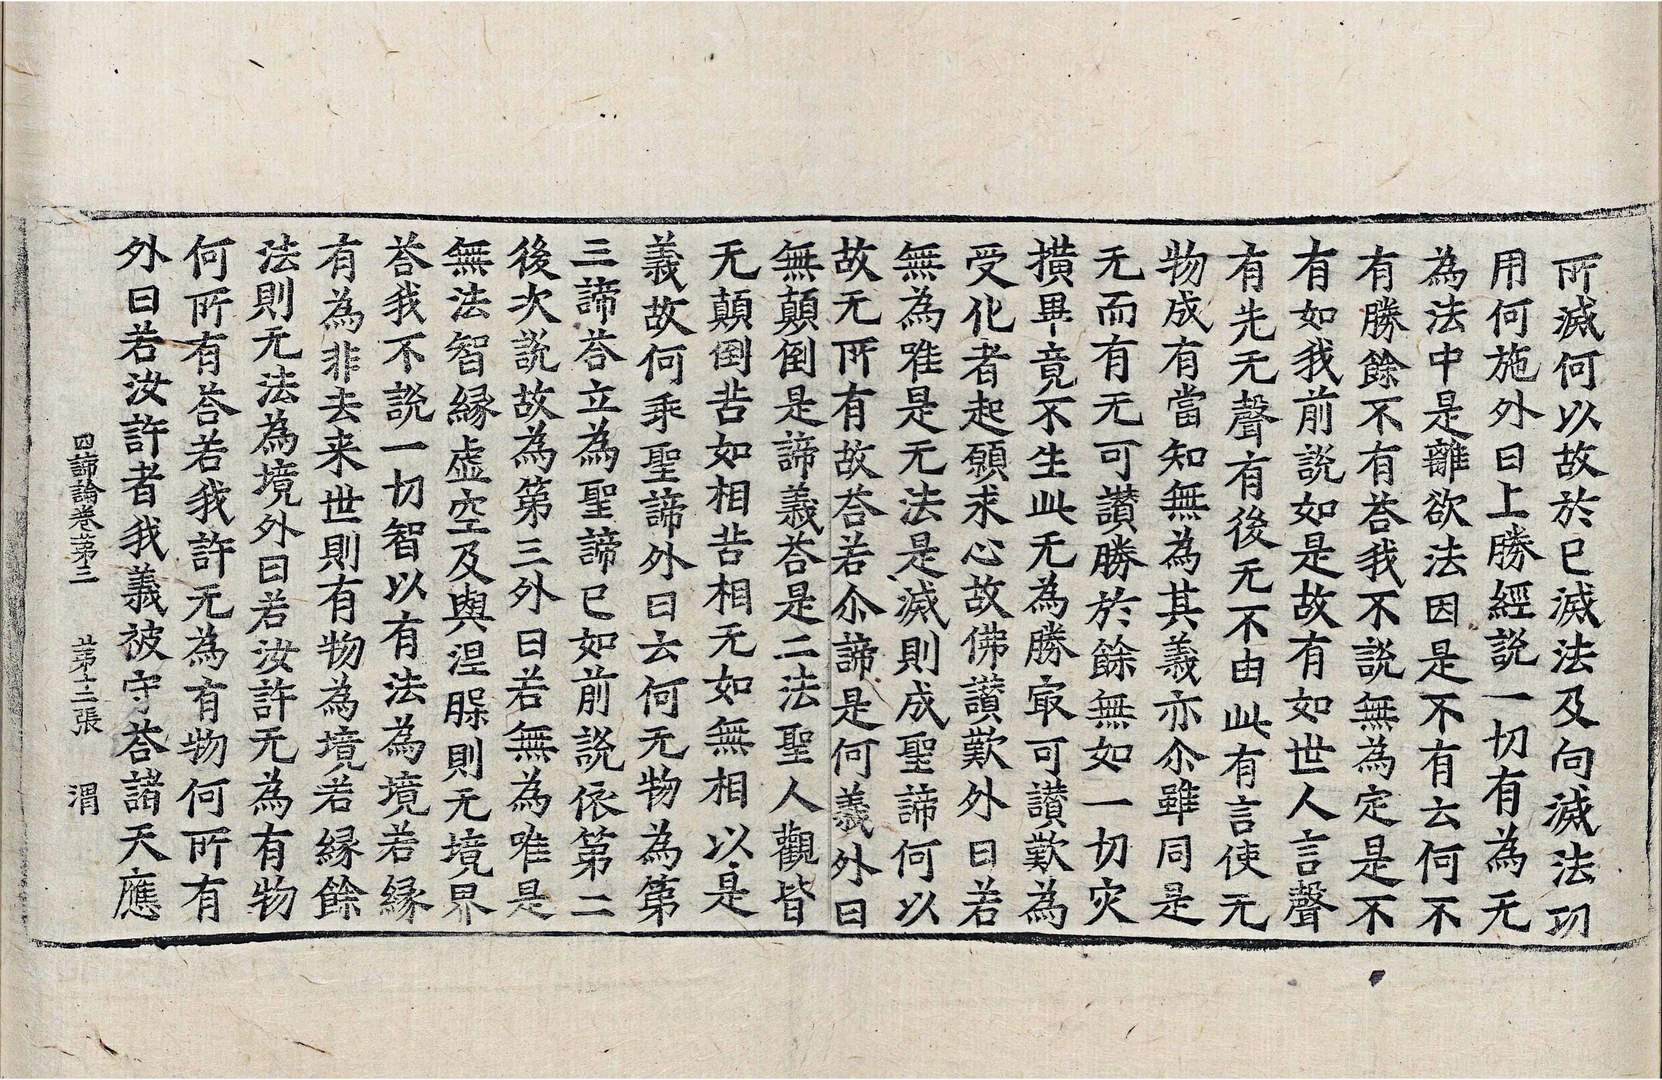 所滅何以故於已滅法及向滅法功
用何施外曰上勝經說一切有為无
為法中是離欲法因是不有云何不
有勝餘不有荅我不說無為定是不
有如我前說如是故有如世人言聲
有先无聲有後无不由此有言使无
物成有當知無為其義亦尒雖同是
无而有无可讃勝於餘無如一切灾
撗畢竟不生此无為勝冣可讃歎為
受化者起願求心故佛讃歎外曰若
無為唯是无法是滅則成聖諦何以
故无所有故荅若尒諦是何義外曰
無顛倒是諦義荅是二法聖人觀皆
无顛倒苦如相苦相无如無相以是
義故何乖聖諦外曰云何无物為第
三諦荅立為聖諦已如前說依第二
後次說故為第三外曰若無為唯是
無法智縁虛空及與涅槃則无境界
荅我不說一切智以有法為境若縁
有為非去来世則有物為境若縁餘
法則无法為境外曰若汝許无為有物
何所有荅若我許无為有物何所有
外曰若汝許者我義被守荅諸天應
四諦論卷第三 第十二張 渭